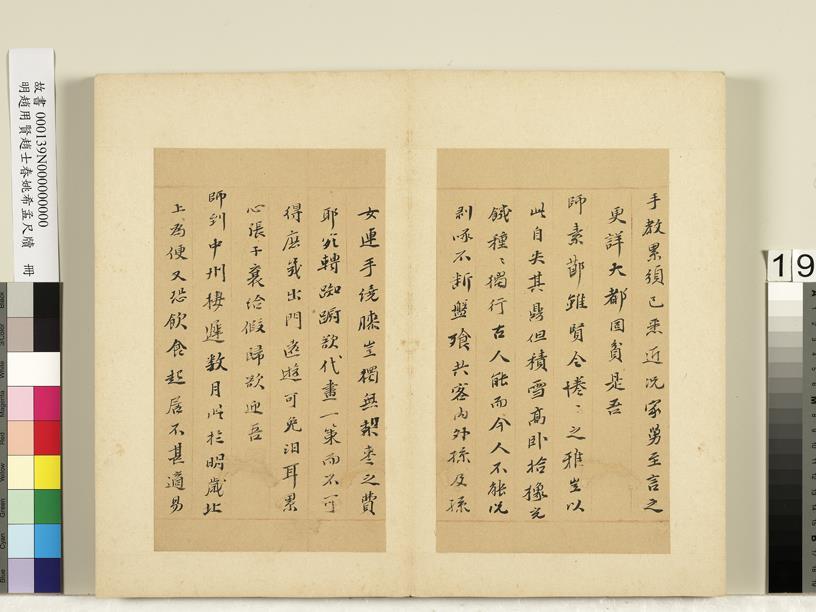 手教累須已悉近況家舅至言之
更詳大都固貧是吾
師素鄙雖賢令惓〻之雅豈以
此自失其鼎但積雪高卧拾橡充
饑種〻獨行古人能而今人不能況
剥啄不断盤飱共客内外孫及孫
女連手繞膝豈獨無梨棗之費
耶北轉踟蹰欲代畫一策而不可
得庶幾出門遠遊可免泪耳累
心張于襄给假歸欲迎吾
師到中州棲遲數月以於明歲北
上為便又恐飲食起居不甚適易
故書 000139N000000000
明趙用賢趙士春姚希孟尺牘 冊
19